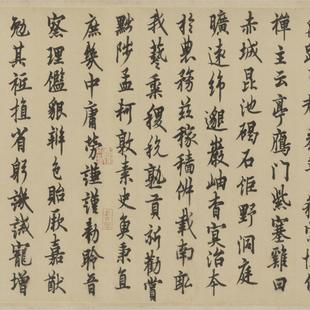 禪主云亭鴈門紫塞雞田
赤城昆池碣石鉅野洞庭
曠遠綿邈巖岫杳冥治本
於農務茲稼穡俶載南畝
我藝黍稷稅熟貢新勸賞
黜陟孟軻敦素史魚秉直
庶幾中庸勞謙謹勑聆音
察理鑑貌辨色貽厥嘉猷
勉其祗植省躬譏誡寵增